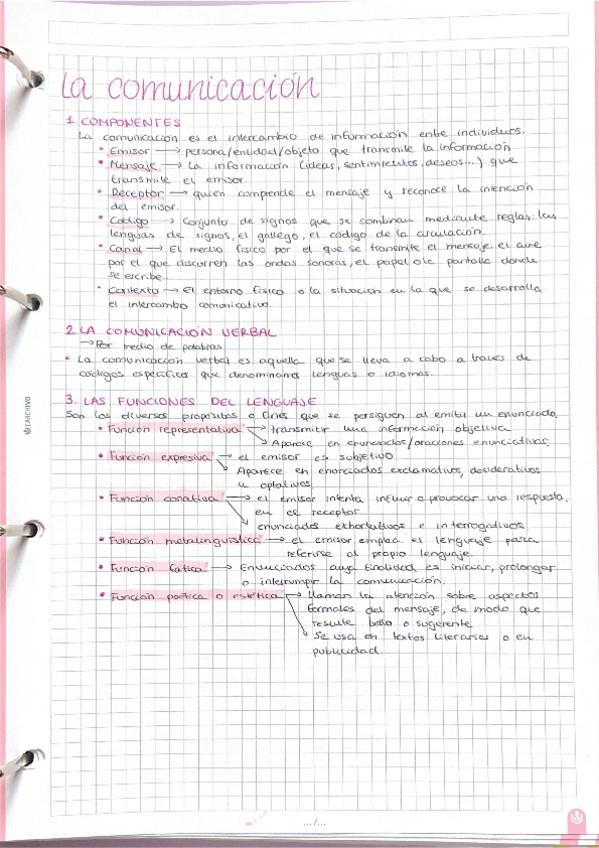 La comunicación
1 COMPONENTES
La comunicación es el intercambio de información entre individuos.
• Emisor → persona/entidad/objeto que transmite la información
• Mensaje → La información (ideas, sentimientos, deseos...) que
transmite el emisor.
• Receptor → quien comprende el mensaje y reconoce la intención
del emisor.
• Código → Conjunto de signos que se combinan mediante reglas: las
lenguas de signos, el gallego, el código de la circulación.
• Canal → El medio físico por el que se transmite el mensaje: el aire
por el que discurren las ondas sonoras, el papel o la pantalla donde
se escribe...
• Contexto → El entorno físico o la situación en la que se desarrolla
el intercambio comunicativo.
2 LA COMUNICACIÓN VERBAL
→ Por medio de palabras
• La comunicación verbal es aquella que se lleva a cabo a través de
códigos específicos que denominamos lenguas o idiomas.
3. LAS FUNCIONES DEL LENGUAJE
Son los diversos propósitos o fines que se persiguen al emitir un enunciado.
• Función representativa → transmitir una información objetiva
→ Aparece en enunciados/oraciones enunciativas
• Función expresiva → el emisor es subjetivo
→ Aparece en enunciados exclamativos, desiderativos
u optativos
• Función conativa → el emisor intenta influir o provocar una respuesta,
en el receptor
→ enunciados exhortativos e interrogativos
• Función metalingüística → el emisor emplea el lenguaje para
referirse al propio lenguaje.
• Función fática → Enunciados cuya finalidad es iniciar, prolongar
o interrumpir la comunicación.
• Función poética o estética → Llaman la atención sobre aspectos
formales del mensaje, de modo que
resulte bello o sugerente
→ Se usa en textos literarios o en
publicidad.
.../...